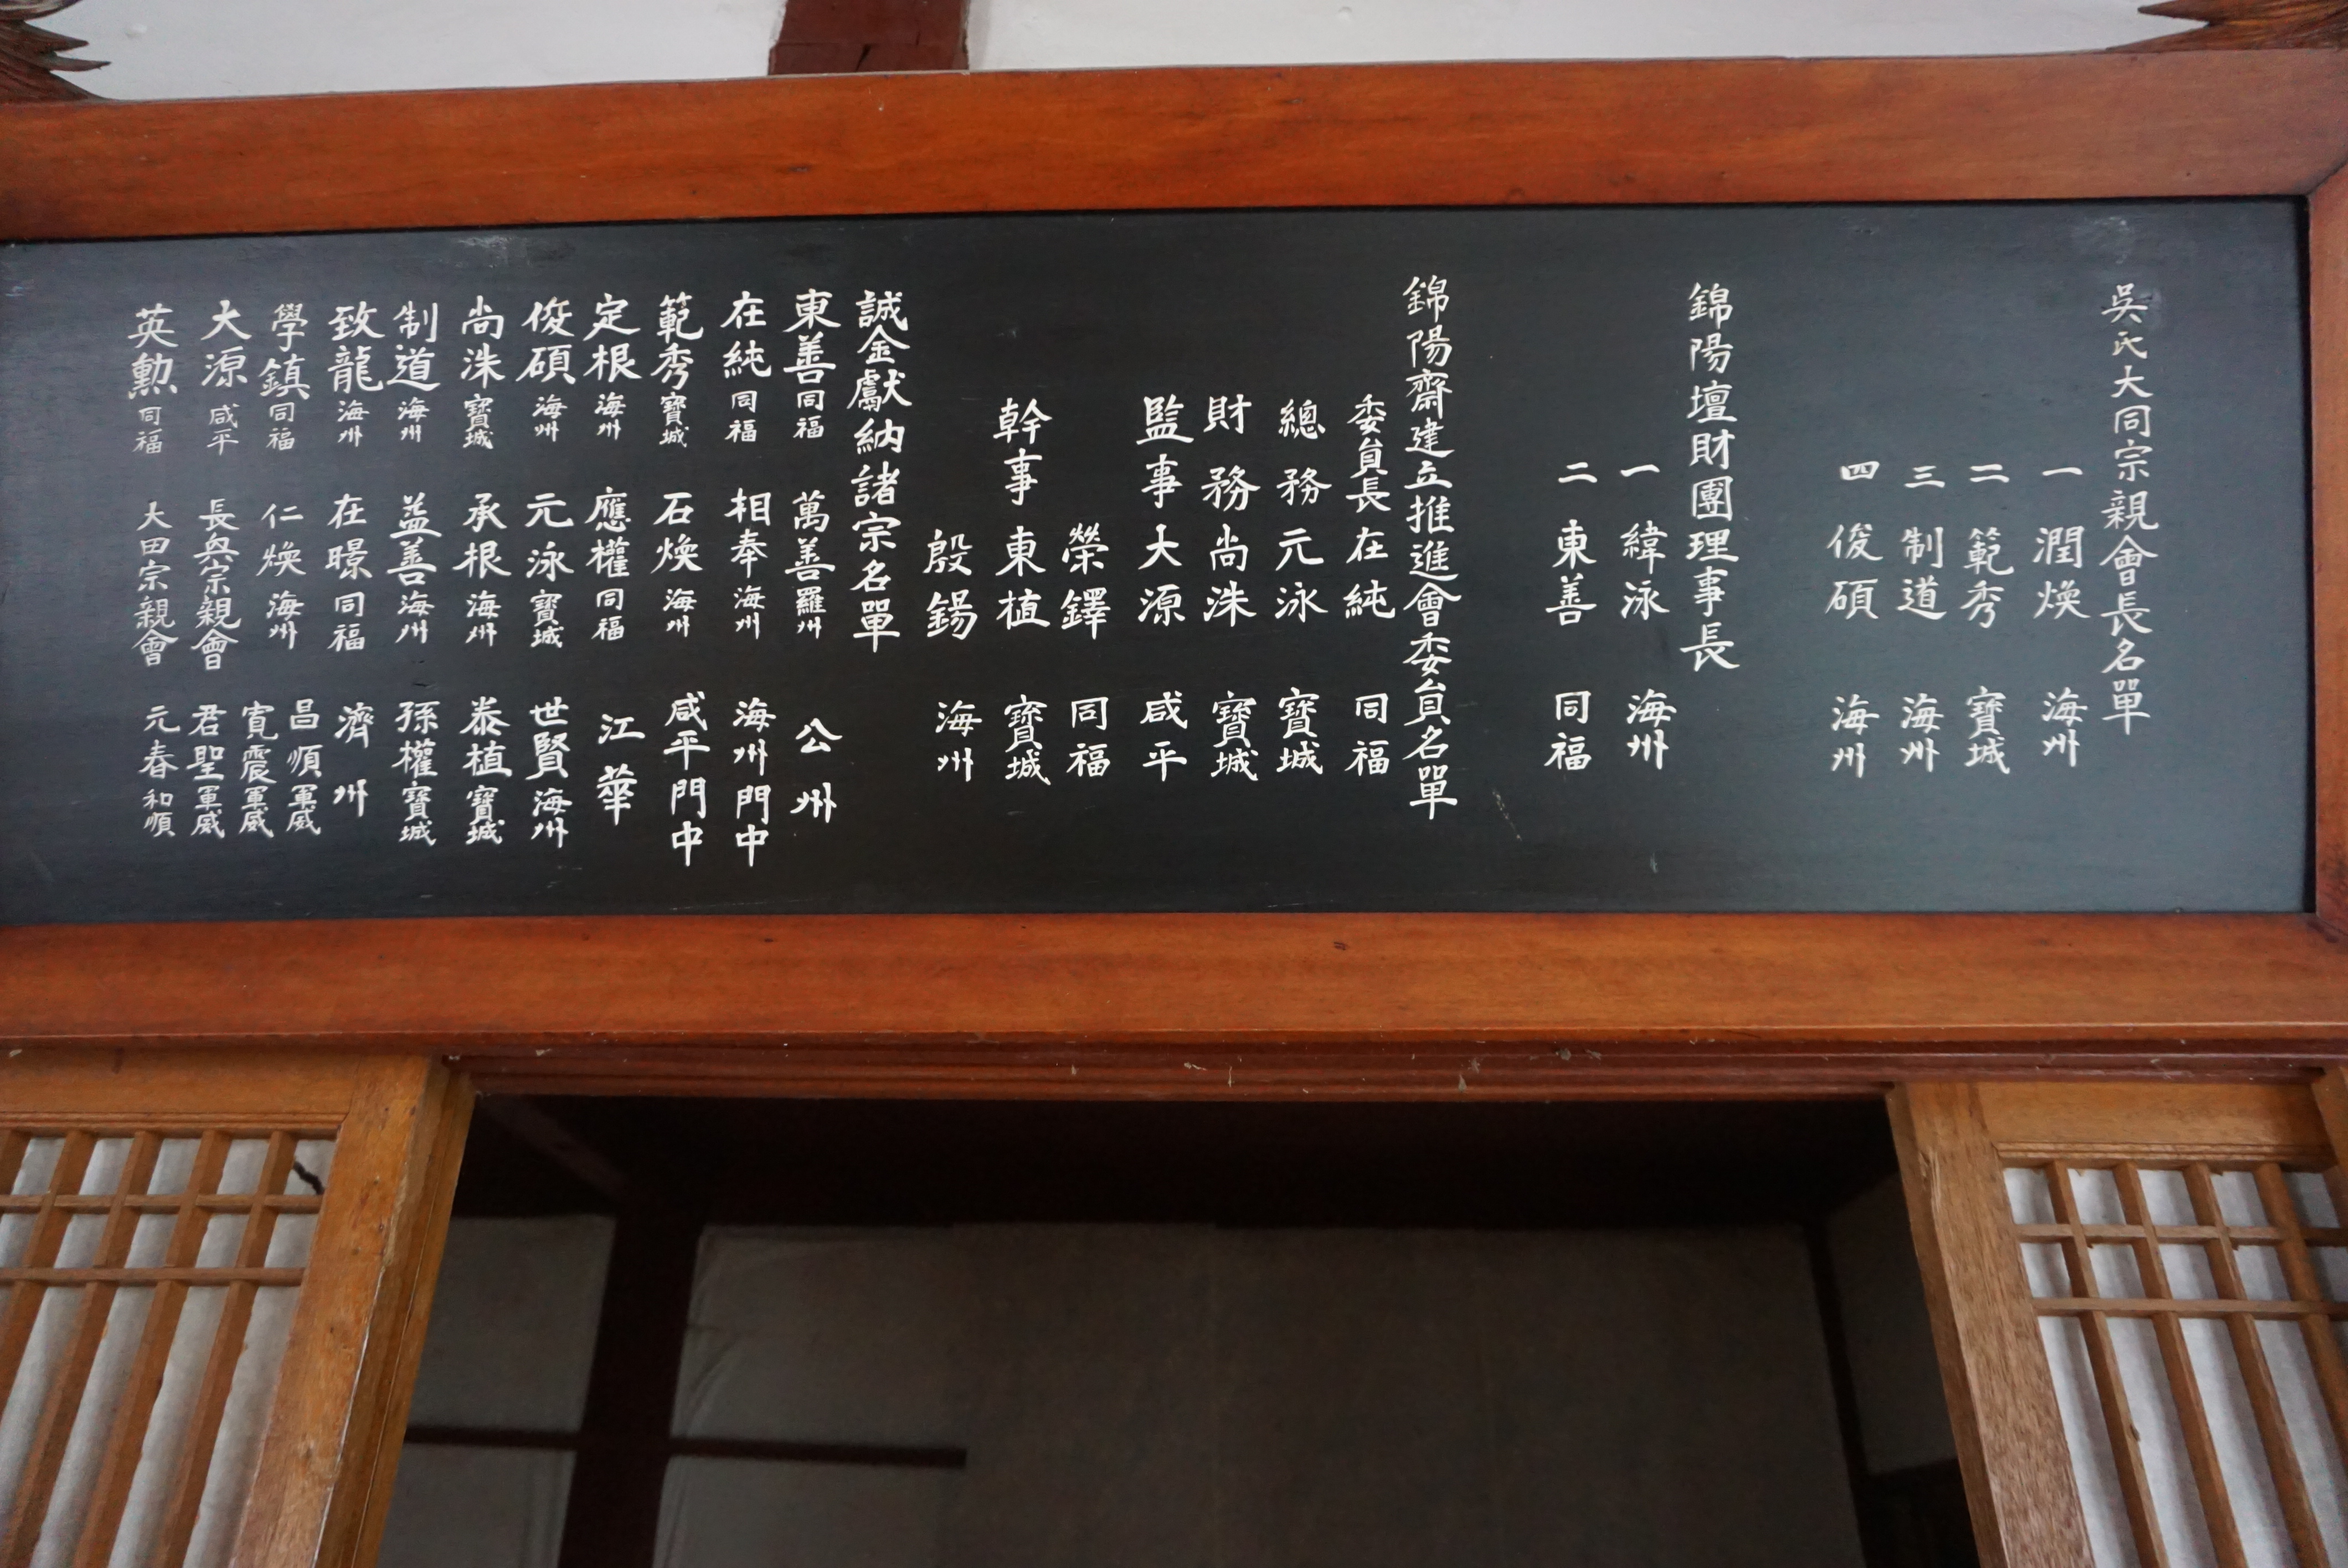 吳氏大同宗親會長名單
一 潤煥 海州
二 範秀 寶城
三 制道 海州
四 俊碩 海州
錦陽壇財團理事長
一 緯泳 海州
二 東善 同福
錦陽齋建立推進會委員名單
委員長 在純 同福
總務 元泳 寶城
財務 尚洙 寶城
監事 大源 咸平
榮鐸 同福
幹事 東植 寶城
殷錫 海州
誠金獻納諸宗名單
東善 同福 萬善 羅州 公州
在純 同福 相奉 海州 海州門中
範秀 寶城 石煥 海州 咸平門中
定根 海州 應權 同福 江華
俊碩 海州 元泳 寶城 世賢 海州
尚洙 寶城 承根 海州 泰植 寶城
制道 海州 益善 海州 孫權 寶城
致龍 海州 在暻 同福 濟州
學鎮 同福 仁煥 海州 昌順 軍威
寬震 軍威
大源 咸平 長興宗親會 君聖 軍威
英勳 同福 大田宗親會 元春 和順